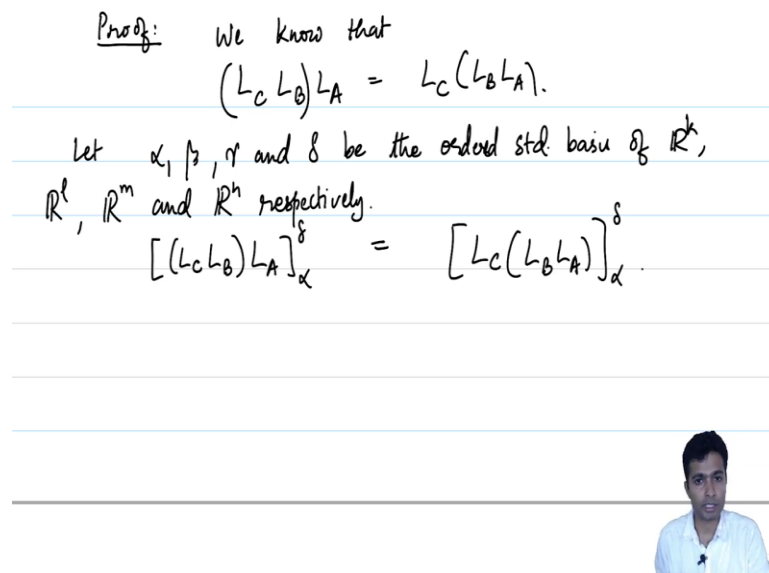 Proof: We know that
(L_C L_B) L_A = L_C (L_B L_A).
Let α, β, γ and δ be the ordered std. basis of ℝ^k,
ℝ^l, ℝ^m and ℝ^n respectively.
[(L_C L_B) L_A]_α^δ = [L_C (L_B L_A)]_α^δ.